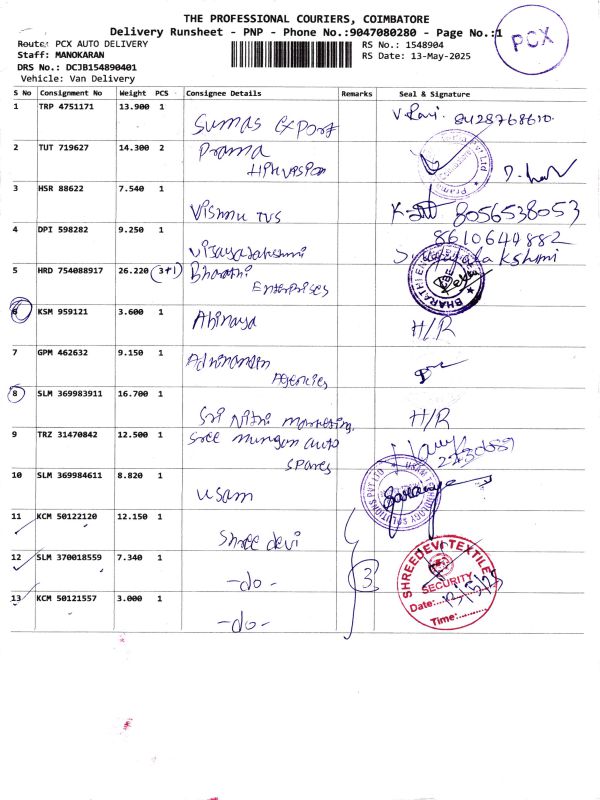 THE PROFESSIONAL COURIERS, COIMBATORE
Delivery Runsheet - PNP - Phone No.:9047080280 - Page No.:1
PCX
Route: PCX AUTO DELIVERY
RS No.: 1548904
Staff: MANOKARAN
RS Date: 13-May-2025
DRS No.: DCJB154890401
Vehicle: Van Delivery
S No Consignment No Weight PCS Consignee Details Remarks Seal & Signature
1 TRP 4751171 13.900 1 Sumas Export V. Ravi. 8428768610.
2 TUT 719627 14.300 2 Prama
3 HSR 88622 7.540 1 Vishnu TVS 8056538053
4 DPI 598282 9.250 1 Vijayalakshmi 8610640882
5 HRD 754088917 26.220 (3+1) Bharathi
Enterprises
BHARATHI
6 KSM 959121 3.600 1 Abinaya H/R
7 GPM 462632 9.150 1
Agencies
8 SLM 369983911 16.700 1 Sri Nithi marketing. H/R
9 TRZ 31470842 12.500 1 Sree murugan auto
Spares
10 SLM 369984611 8.820 1 usam
USAM TECHNOLOGY SOLUTIONS PVT LTD
11 KCM 50122120 12.150 1 Shree devi
12 SLM 370018559 7.340 1 -do- 3
SHREEDEVI TEXTILE
SECURITY
Date:.. 13/5/25
Time:..........
13 KCM 50121557 3.000 1 -do-